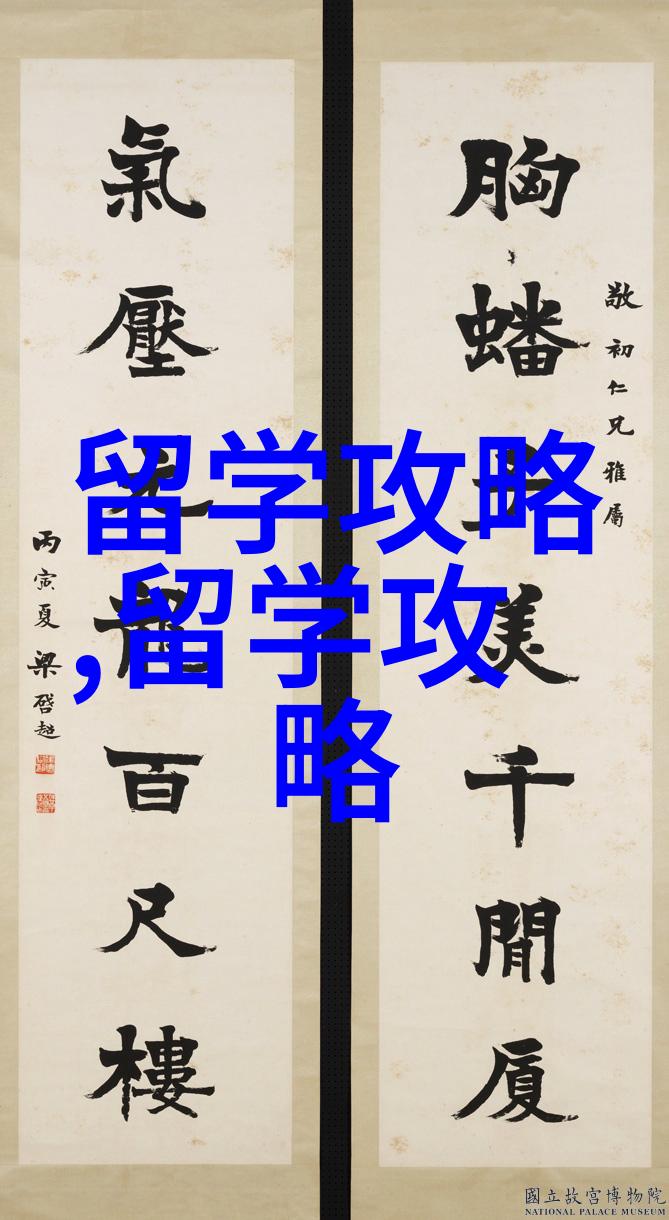 胸蟠子美千間厦
敬初仁兄雅屬
氣壓元龍百尺樓
丙寅夏梁啓超
留学攻略
,留学攻
略
國立故宮博物院
NATIONAL PALACE MUSEUM